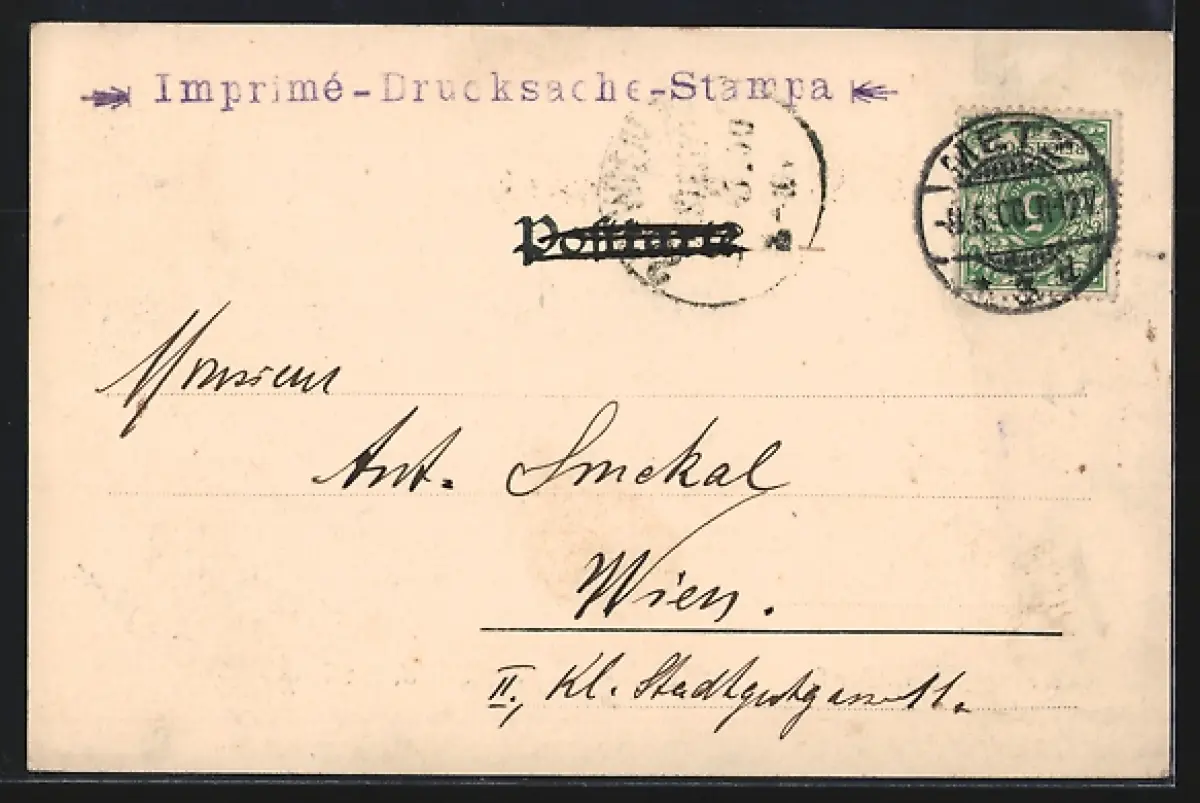 Imprimé-Drucksache-Stampa
METZ
5.00.11-12V.
5
Postkarte
Monsieur
Ant. Smekal
Wien.
II, Kl. Stadtgutgasse 11.